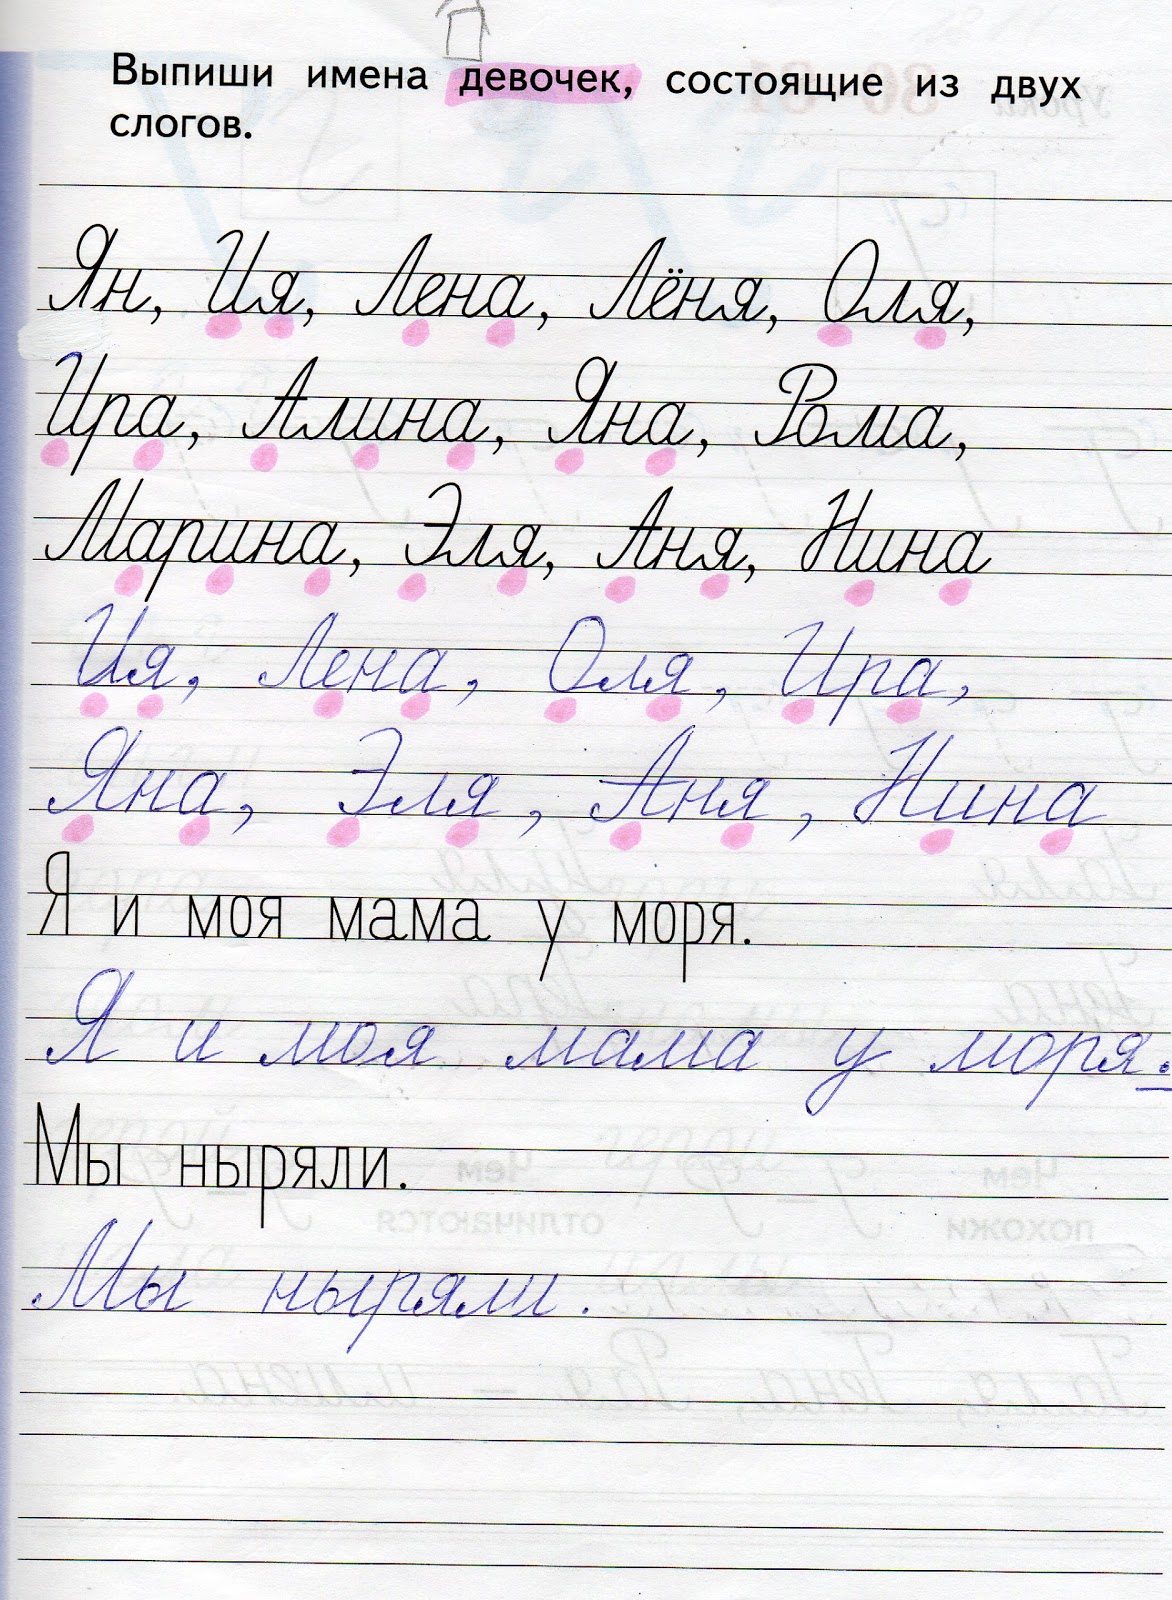 Выпиши имена девочек, состоящие из двух
слогов.
Ян, Ия, Лена, Лёня, Оля,
Ира, Алина, Яна, Рома,
Марина, Эля, Аня, Нина
Ия, Лена, Оля, Ира,
Яна, Эля, Аня, Нина
Я и моя мама у моря.
Я и моя мама у моря.
Мы ныряли.
Мы ныряли.